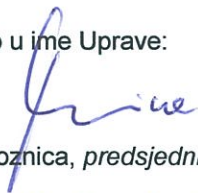 u ime Uprave:
oznica, predsjedni